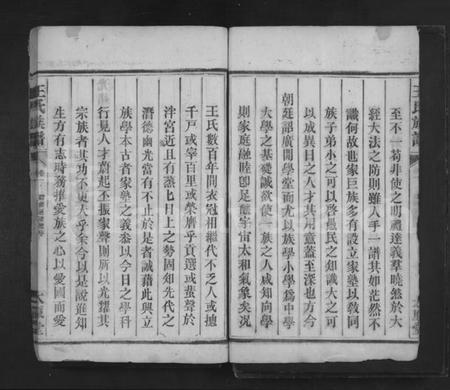 王氏族譜
至不一苟非使之明禮達義羣曉然於大
經大法之防則雖人手一譜其如茫然不
識何故也家巨族多有設立家塾以敎同
族子弟小之可以啓愚民之知識大之可
以成異日之人才其用意蓋至深也方今
朝廷詔廣開學堂而尤以族學小學爲中學
大學之基礎誠欲使一族之人咸知向學
則家庭融睦卽足釀宇宙太和氣象矣況
王氏數百年間衣冠相繼代不乏人或擁
千戶或宰百里或榮膺乎貢選或蜚聲於
泮宮近且有蒸蒸日上之勢固知先代之
潛德幽光當有不止於是者誠藉此興立
族學本古者家塾之義叅以今日之學科
行見人才蔚起丕振家聲則所以光耀其
宗族者其功不更大乎余今以是說進知
生方有志時務推愛族之心以愛國而愛
王氏族譜